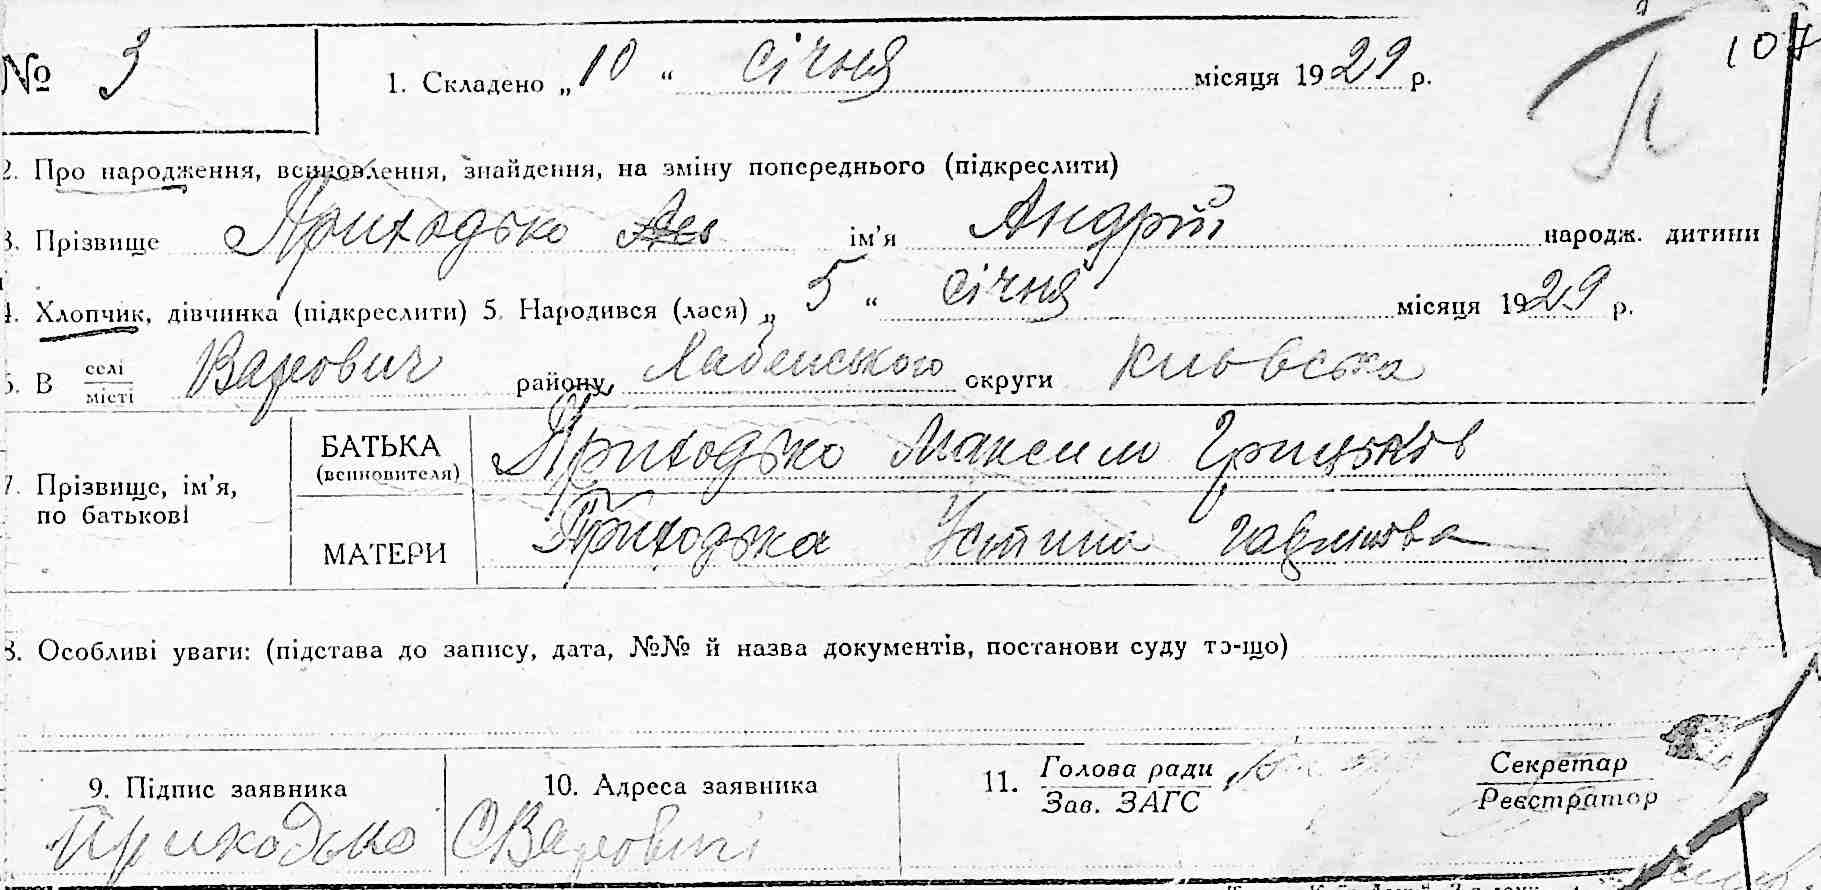 107
№ 3 1. Складено „10“ січня місяця 1929 р.
П
2. Про народження, всиновлення, знайдення, на зміну попереднього (підкреслити)
3. Прізвище Приходько ім’я Андрій народж. дитини
4. Хлопчик, дівчинка (підкреслити) 5. Народився (лася) „5“ січня місяця 1929 р.
6. В селі/місті Варович району Хабенського округи Київська
7. Прізвище, ім’я, по батькові
БАТЬКА (всиновителя) Приходько Максим Грицьків
МАТЕРИ Приходька Устина Гаврилова
8. Особливі уваги: (підстава до запису, дата, №№ й назва документів, постанови суду то-що)
9. Підпис заявника 10. Адреса заявника 11. Голова ради / Зав. ЗАГС Секретар / Реєстратор
Приходько С Варовичі